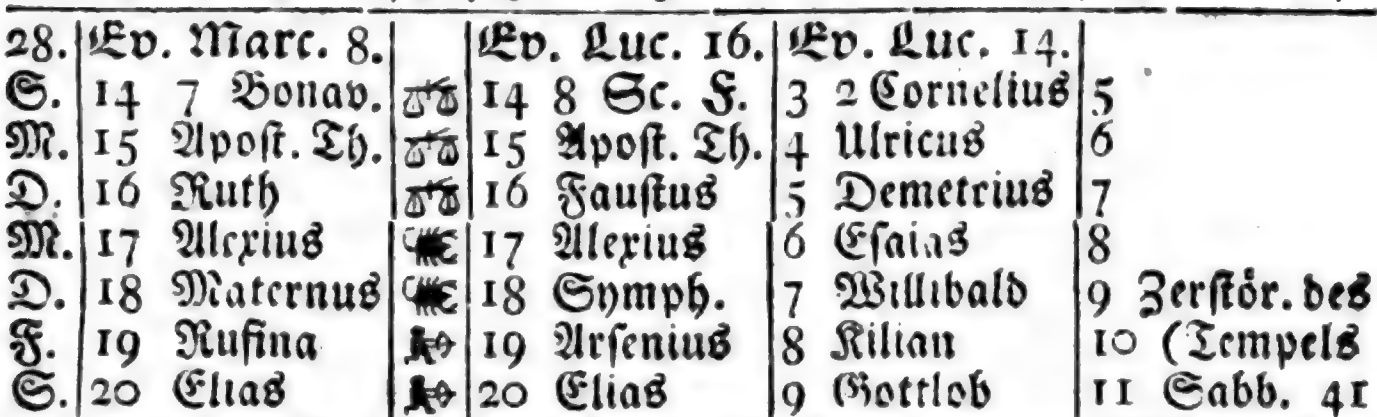 28. Ev. Marc. 8. Ev. Luc. 16. Ev. Luc. 14.
S. 14 7 Bonav. 14 8 Sc. F. 3 2 Cornelius 5
M. 15 Apost. Th. 15 Apost. Th. 4 Ulricus 6
D. 16 Ruth 16 Faustus 5 Demetrius 7
M. 17 Alexius 17 Alexius 6 Esaias 8
D. 18 Maternus 18 Symph. 7 Willibald 9 Zerstör. des
F. 19 Rufina 19 Arsenius 8 Kilian 10 (Tempels
S. 20 Elias 20 Elias 9 Gottlob 11 Sabb. 41